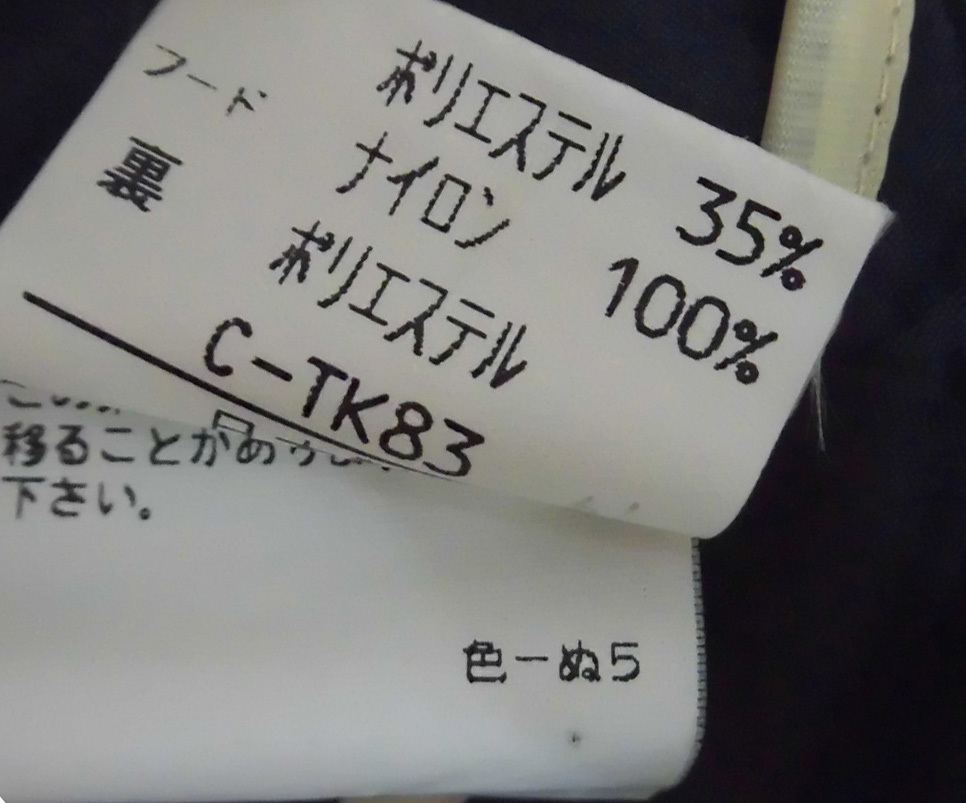 ポリエステル 35%
フード ナイロン 100%
裏 ポリエステル
C-TK83
移ることがあ
下さい。
色ーぬ5